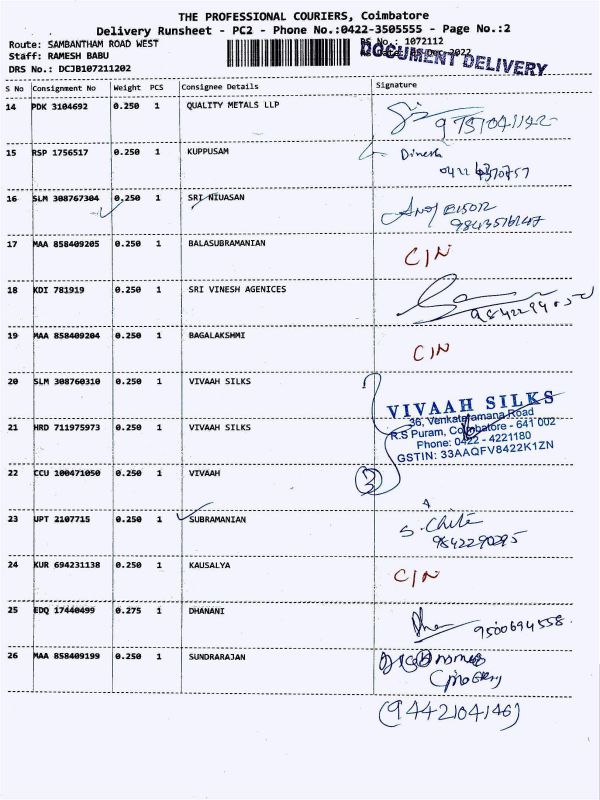 THE PROFESSIONAL COURIERS, Coimbatore
Delivery Runsheet - PC2 - Phone No.:0422-3505555 - Page No.:2
Route: SAMBANTHAM ROAD WEST
Staff: RAMESH BABU
DRS No.: DCJB107211202
DS No.: 1072112
Dec-2022
DOCUMENT DELIVERY
S No Consignment No Weight PCS Consignee Details Signature
14 PDK 3104692 0.250 1 QUALITY METALS LLP
15 RSP 1756517 0.250 1 KUPPUSAM Dinesh
16 SLM 308767304 0.250 1 SRI NIUASAN
17 MAA 858409205 0.250 1 BALASUBRAMANIAN C/N
18 KDI 781919 0.250 1 SRI VINESH AGENICES
19 MAA 858409204 0.250 1 BAGALAKSHMI C/N
20 SLM 308760310 0.250 1 VIVAAH SILKS
21 HRD 711975973 0.250 1 VIVAAH SILKS
22 CCU 100471050 0.250 1 VIVAAH
VIVAAH SILKS
36, Venkataramana Road
R.S Puram, Coimbatore - 641 002
Phone: 0422 - 4221180
GSTIN: 33AAQFV8422K1ZN
3
23 UPT 2107715 0.250 1 SUBRAMANIAN
9842290295
24 KUR 694231138 0.250 1 KAUSALYA C/N
25 EDQ 17440499 0.275 1 DHANANI 9500694558
26 MAA 858409199 0.250 1 SUNDRARAJAN
(9442104146)